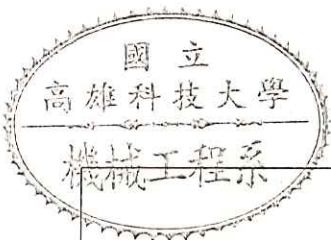 國立
高雄科技大學
機械工程系